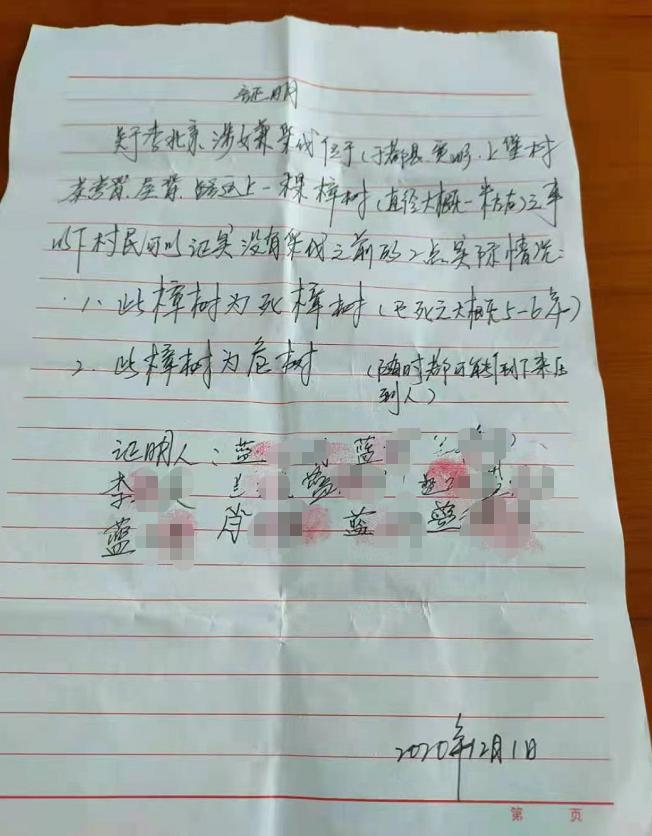 证明
关于李北京涉嫌采伐位于(于都县贡 上堡村
背屋背 边上一棵樟树(直径大概一米左右)之事
以下村民可以证实没有采伐之前的2点实际情况:
1、此樟树为死樟树(已死亡大概5-6年)
2、此樟树为危树 (随时都可能倒下来压
到人)
证明人:蓝 蓝
李 蓝
蓝 肖 蓝 蓝
2020年12月1日
第 页